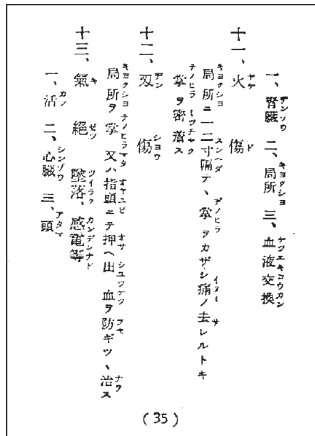 一、腎臓 二、局所 三、血液交換
十一、火傷
局所ニ一二寸隔テ、掌ヲカザシ痛ノ去レルトキ
掌ヲ密著ス
十二、刄傷
局所ヲ掌又ハ指頭ニテ押ヘ出血ヲ防ギツヽ治ス
十三、氣絕 墜落、感電等
一、活 二、心臓 三、頭
(35)